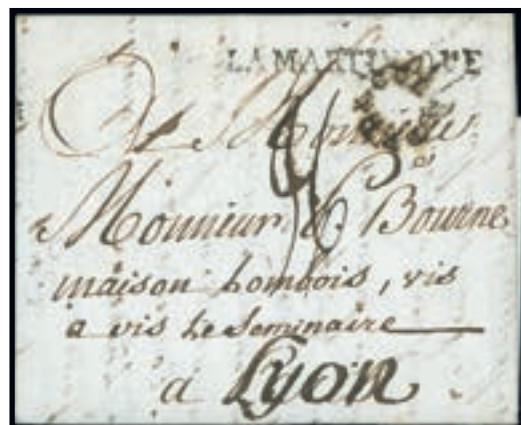 LA MARTINIQUE
A Monsieur
Monsieur Bourne
maison Lombois, vis
a vis le Seminaire
a Lyon